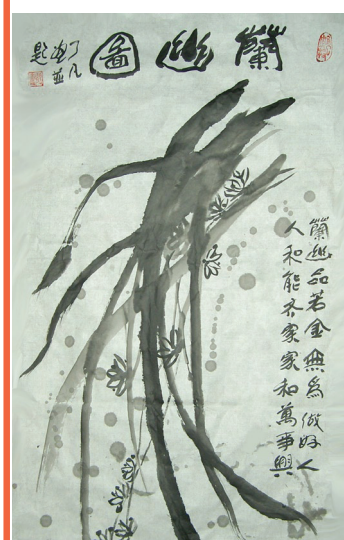 蘭幽圖
了凡
並
题
蘭幽品若金無爲做好人
人和能齐家家和萬事興